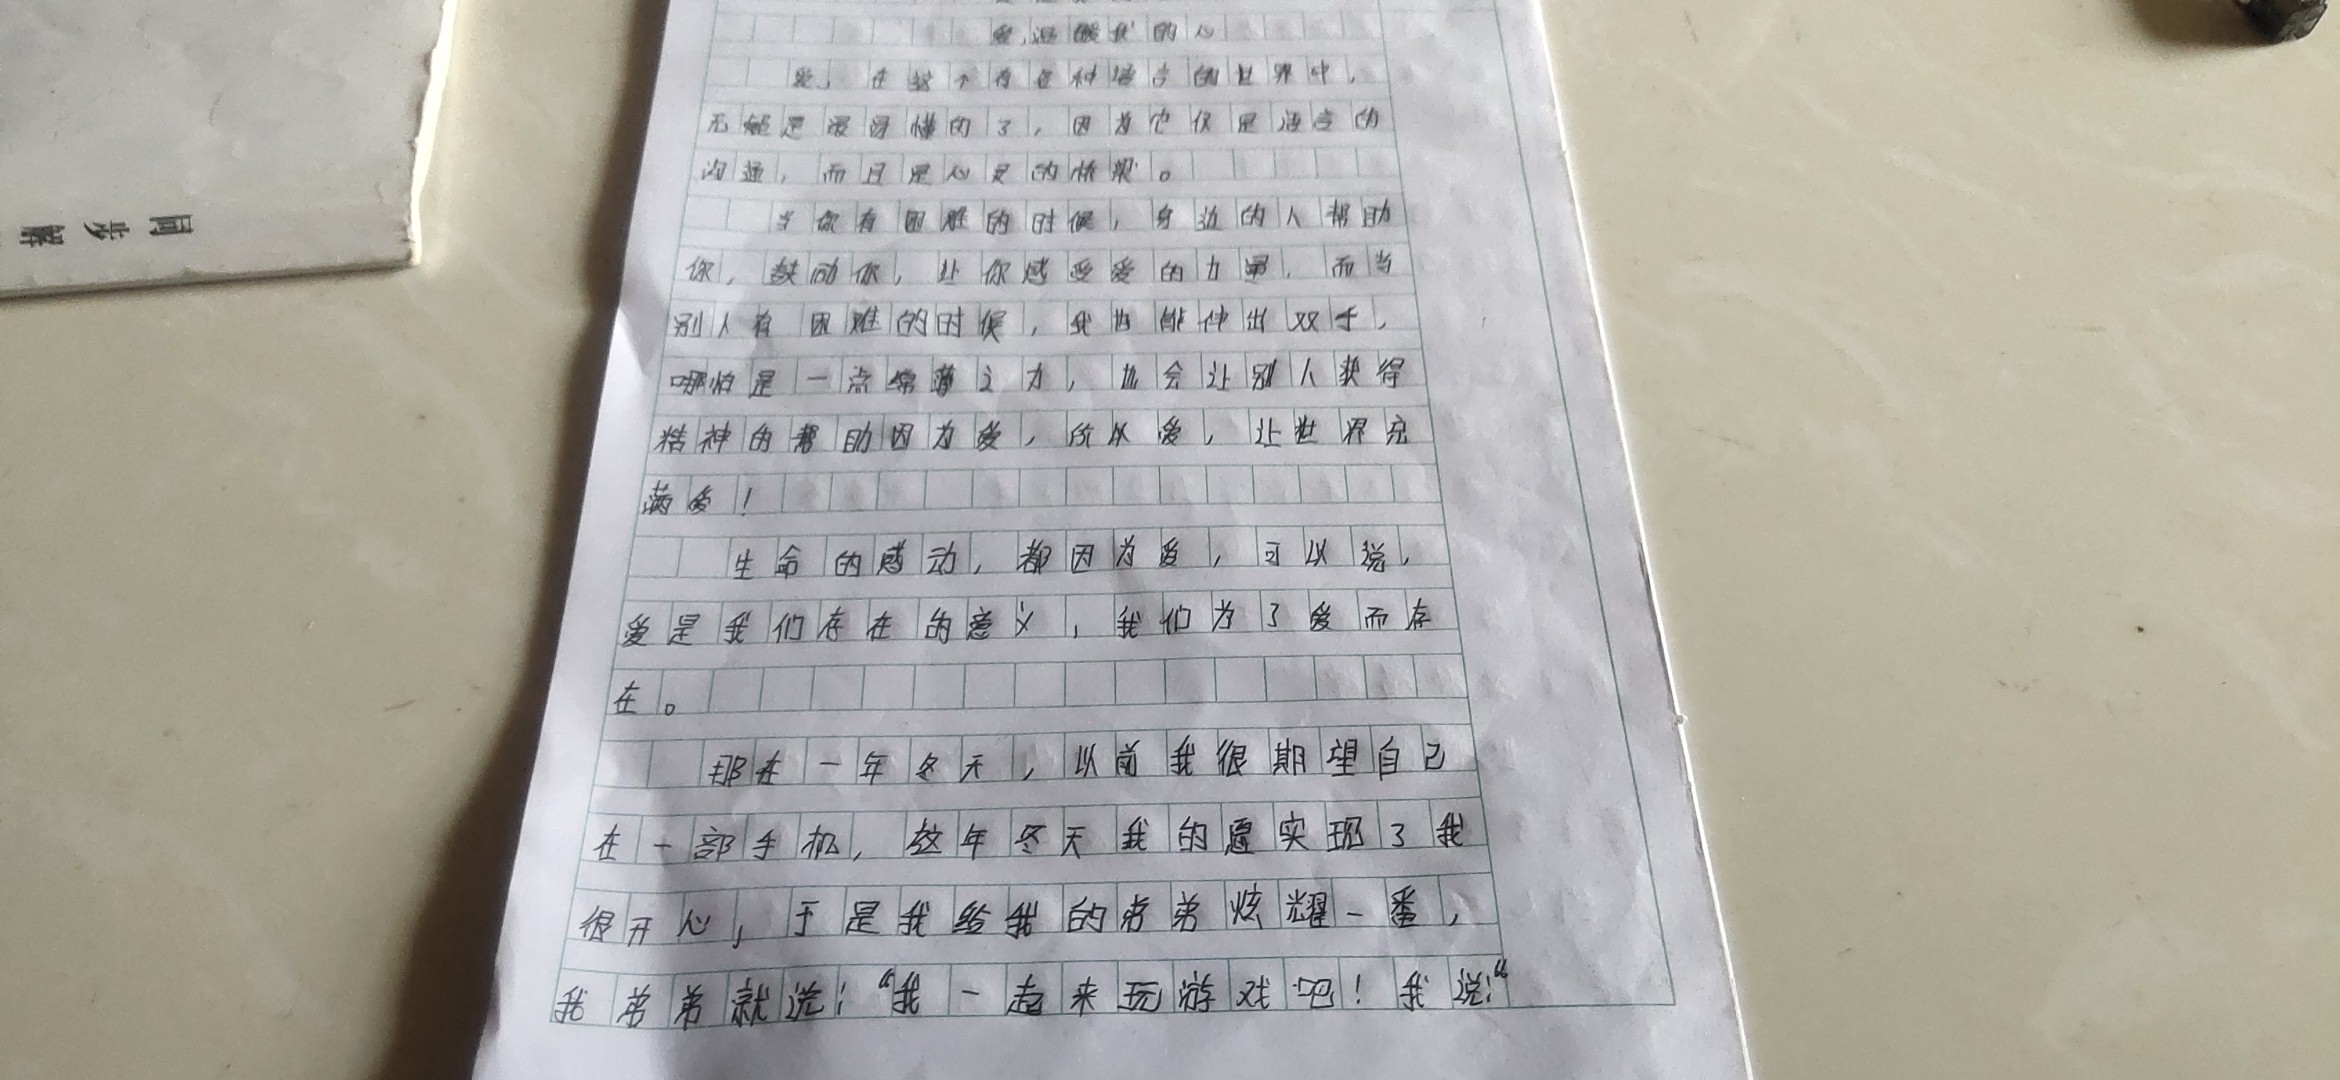 爱,温暖我的心
爱,在这个有各种语言的世界中,
无疑是最浮懂的了,因为它仅是语言的
沟通,而且是心灵的桥梁。
当你有困难的时候,身边的人帮助
你,鼓励你,让你感受爱的力量,而当
别人有困难的时候,我也能伸出双手,
哪怕是一点绵薄之力,也会让别人获得
精神的帮助因为爱,所以爱,让世界充
满爱!
生命的感动,都因为爱,可以说,
爱是我们存在的意义,我们为了爱而存
在。
那在一年冬天,以前我很期望自己
在一部手机,这年冬天我的愿实现了我
很开心,于是我给我的弟弟炫耀一番,
我弟弟就说:“我一起来玩游戏吧!我说:“
同步解